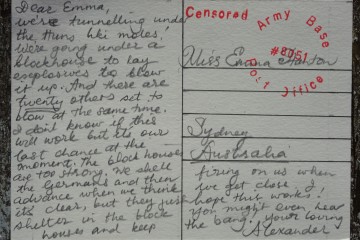 Dear Emma,
we're tunnelling under
the Huns like moles!
We're going under a
blockhouse to lay
explosives to blow
it up. And there are
twenty others set to
blow at the same time.
I don't know if this
will work but its our
last chance at the
moment. The block houses
are too strong. We shell
the Germans and then
advance when we think
its clear, but they just
shelter in the block
houses and keep
Censored
Army Base
#8051
Post Office
Miss Emma
Sydney
Australia
firing on us when
we get close. I
hope this works!
You might even hear
the bang! Your loving
Alexander